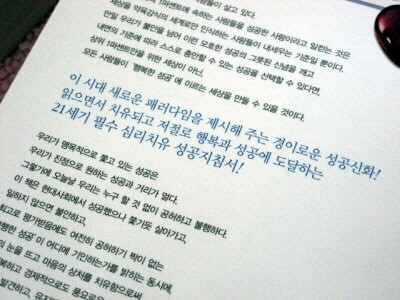 람들이 살고 있다.
1퍼센트에 속하는 사람들을 성공한 사람이라고 일컫는 것은
세상을 약육강식의 세계로만 인식하는 사람들이 내세우는 기준일 뿐이다.
만일 우리가 불만을 넘어 이런 모호한 성공의 그릇된 신념을 깨고
내면의 기준에 따라 스스로 충만할 수 있는 성공을 선택할 수 있다면,
상위 1퍼센트만을 위한 세상이 아닌,
모든 사람들이 '행복한 성공'에 이르는 세상을 만들 수 있을 것이다.
이 시대 새로운 패러다임을 제시해 주는 경이로운 성공신화!
읽으면서 치유되고 저절로 행복과 성공에 도달하는
21세기 필수 심리치유 성공지침서!
우리가 맹목적으로 좇고 있는 성공은
우리가 진정으로 원하는 성공과 거리가 멀다.
그렇기에 오늘날 우리는 누구 할 것 없이 공허하고 불행하다.
이 책은 현대사회에서 성공했으나 쫓기듯 살아가고,
일하지 않으면 불안하고,
최고로 평가받음에도 여전히 공허하기 짝이 없는
행한 성공'이 어디에 기인하는가를 밝히는 동시에,
의 눈을 뜨고 마음의 상처를 치유함으로써
복하고 경제적으로도 풍요로운
발견하고,